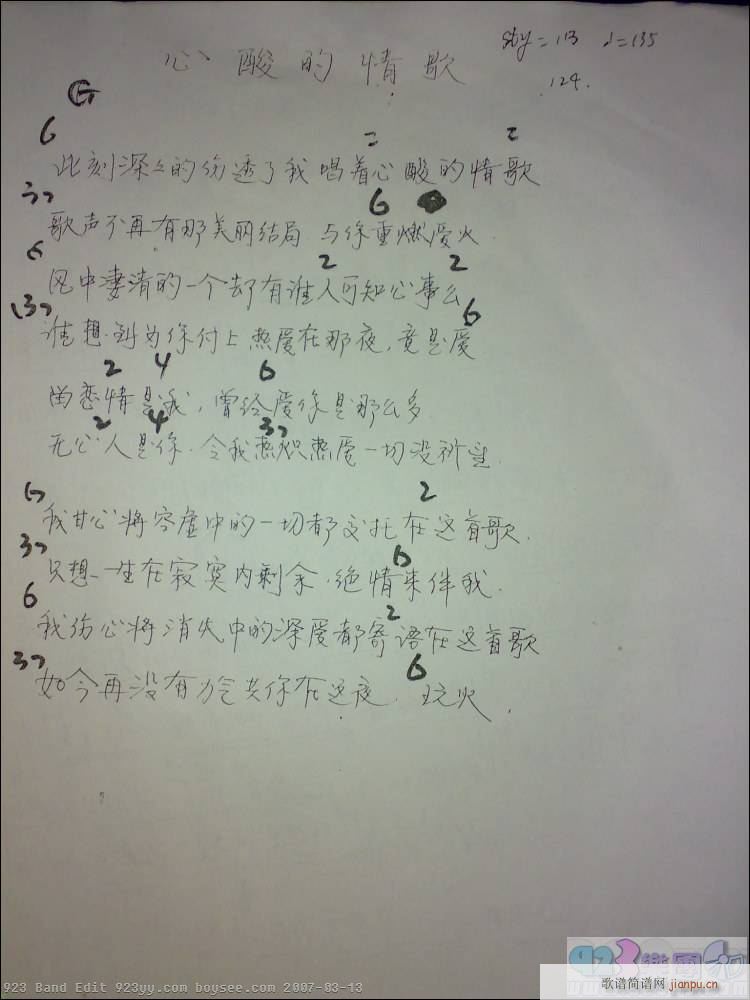 心酸的情歌
sty=113 ♩=135
124.
G
6 2 2
此刻深々的伤透了我 唱着心酸的情歌
37 6
歌声不再有那美丽结局 与你重燃爱火
6 2 2
风中凄清的一个却有谁人可知心事么
(37 6
谁想到为你付上热爱在那夜,竟是爱
2 4 6
留恋情是我,曾经爱你是那么多
2 4 37
无心人是你.令我热炽热爱一切没祈望.
6 2
我甘心将容虚中的一切都交托在这首歌.
37 6
只想一生在寂寞内剩余.绝情来伴我.
6 2
我伤心将消失中的深爱都寄语在这首歌
37 6
如今再没有力气共你在这夜.玩火.
923 Band Edit 923yy.com boysee.com 2007-03-13
923乐园
歌谱简谱网
jianpu.cn